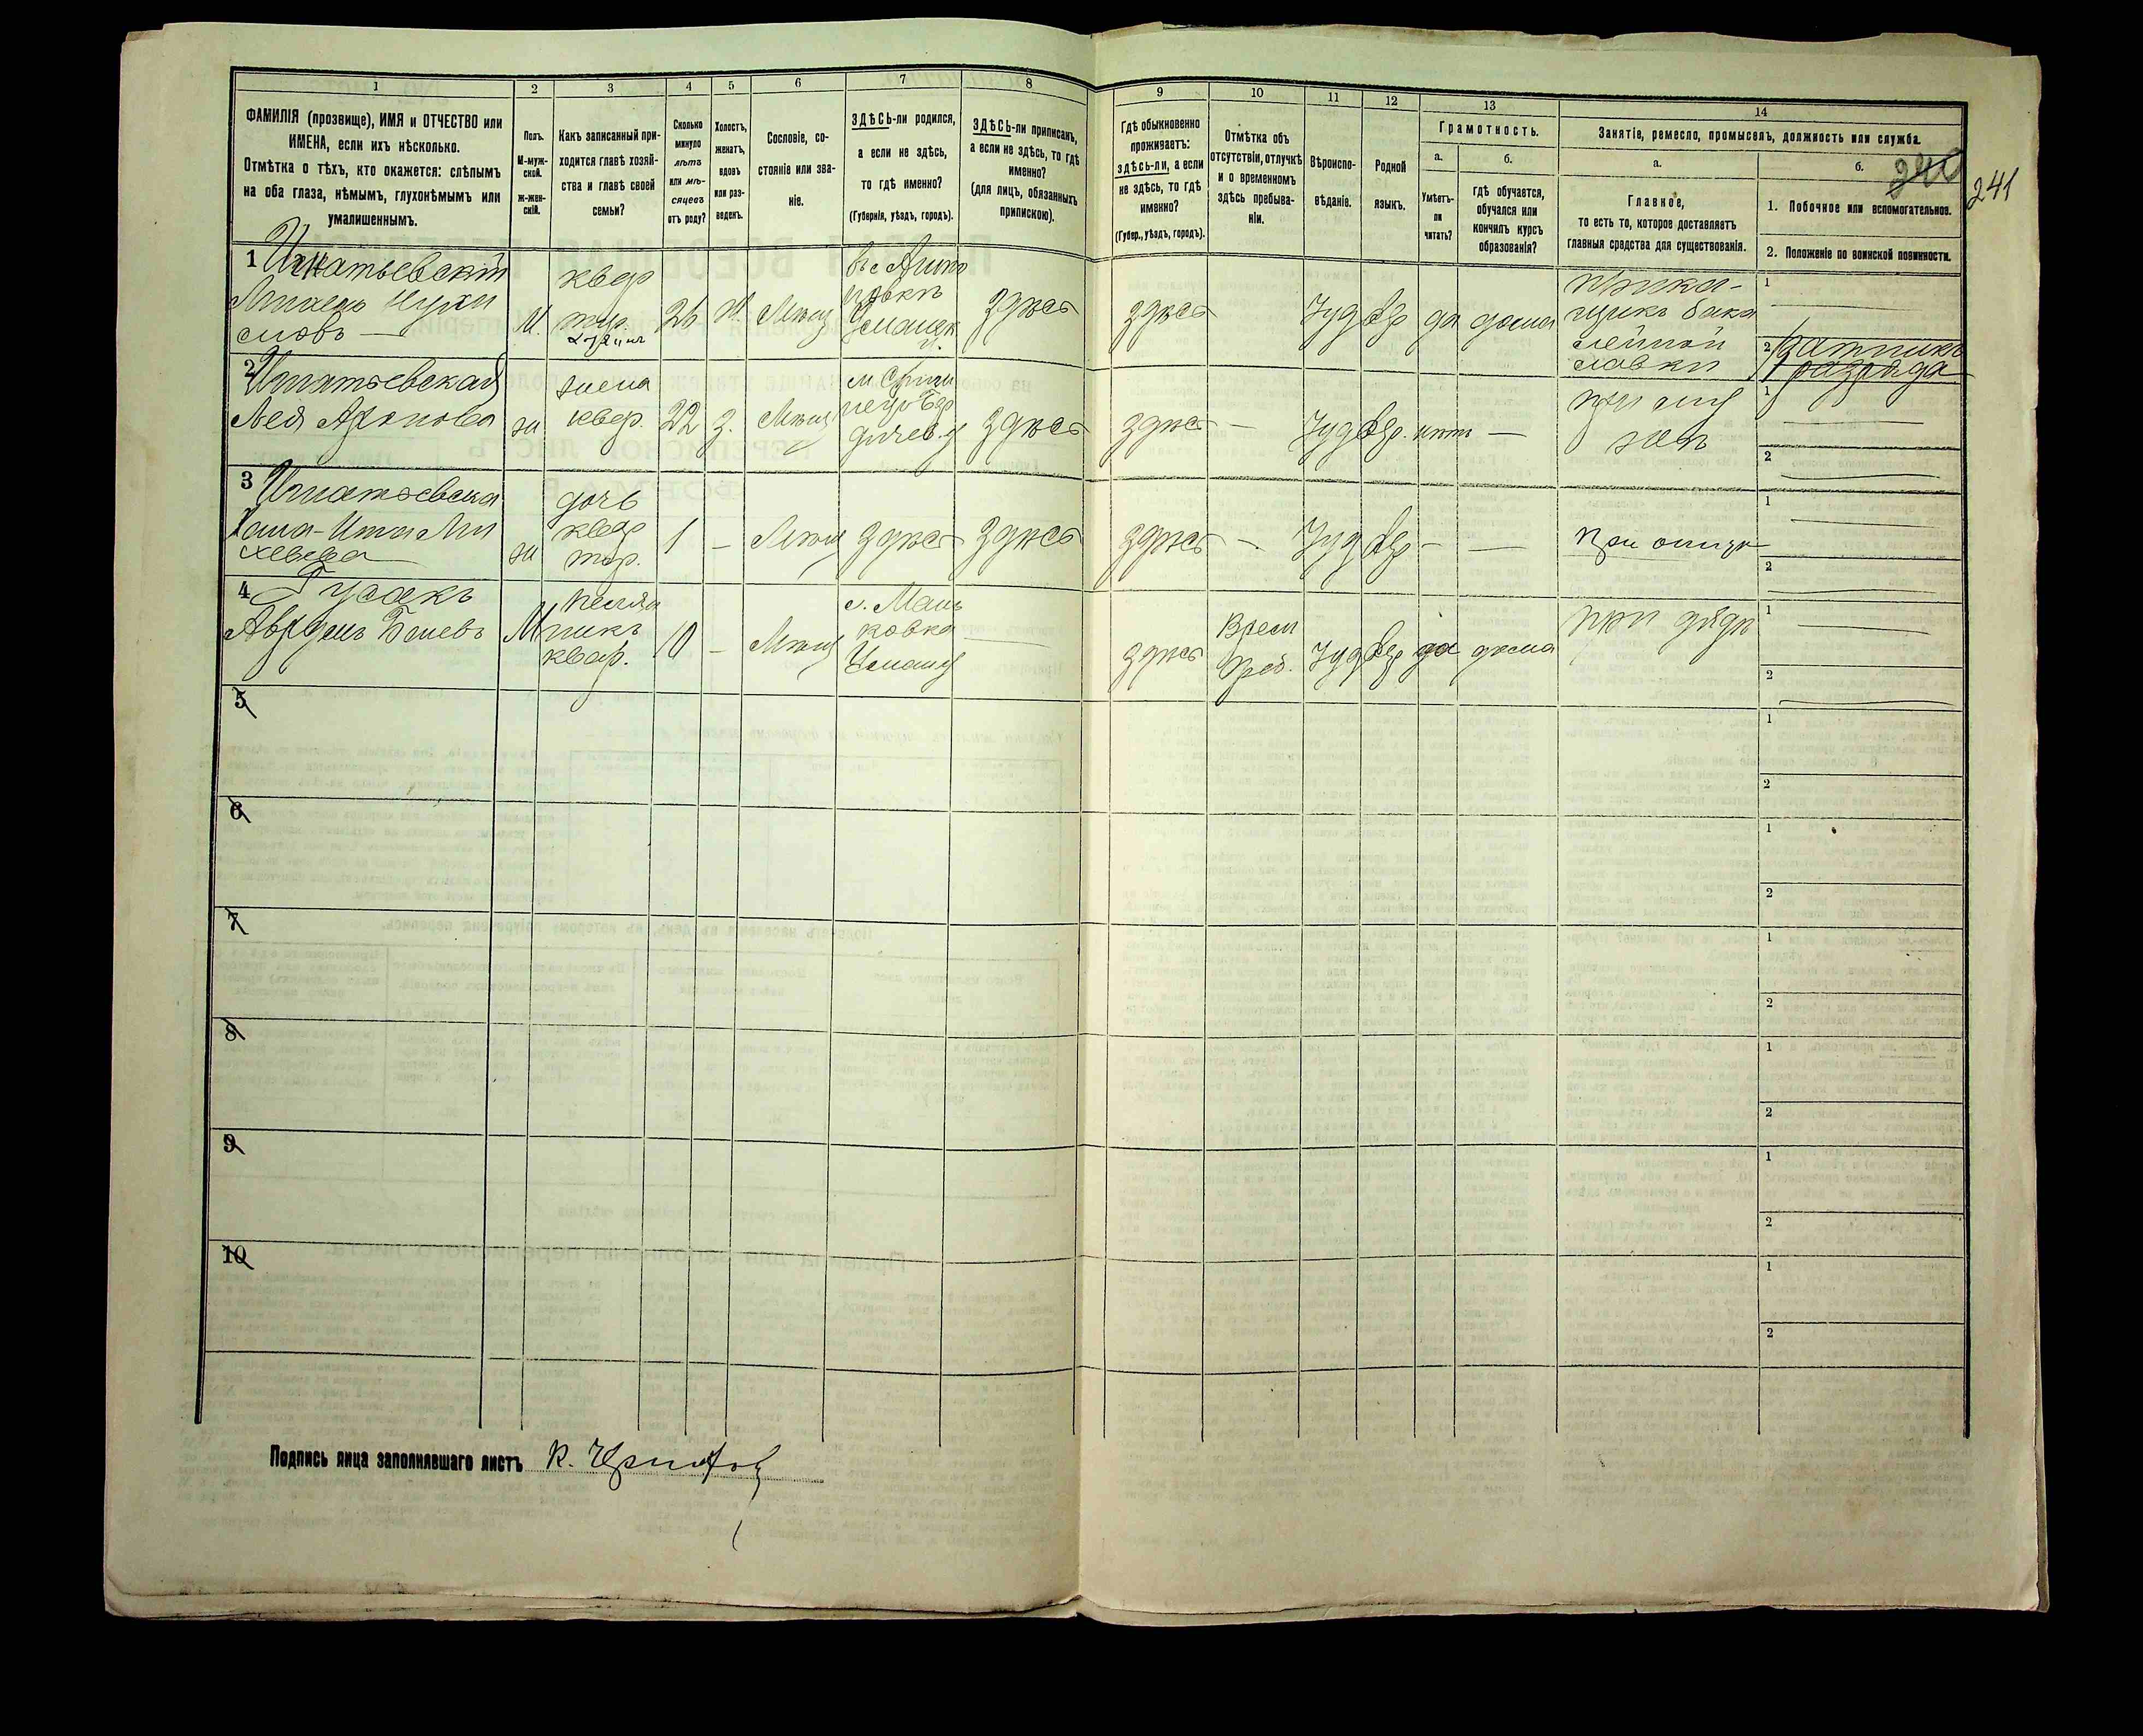 1
2
3
4
5
6
7
8
9
10
11
12
13
14
ФАМИЛІЯ (прозвище), ИМЯ и ОТЧЕСТВО или
ИМЕНА, если ихъ нѣсколько.
Отмѣтка о тѣхъ, кто окажется: слѣпымъ
на оба глаза, нѣмымъ, глухонѣмымъ или
умалишеннымъ.
Полъ.
М-муж-
ской.
Ж-жен-
скій.
Какъ записанный при-
ходится главѣ хозяй-
ства и главѣ своей
семьи?
Сколько
минуло
лѣтъ
или мѣ-
сяцевъ
отъ роду?
Холостъ,
женатъ,
вдовъ
или раз-
веденъ.
Сословіе, со-
стояніе или зва-
ніе.
ЗДѢСЬ-ли родился,
а если не здѣсь,
то гдѣ именно?
(Губернія, уѣздъ, городъ).
ЗДѢСЬ-ли приписанъ,
а если не здѣсь, то гдѣ
именно?
(для лицъ, обязанныхъ
припискою).
Гдѣ обыкновенно
проживаетъ:
здѣсь-ли, а если
не здѣсь, то гдѣ
именно?
(Губер., уѣздъ, городъ).
Отмѣтка объ
отсутствіи, отлучкѣ
и о временномъ
здѣсь пребыва-
ніи.
Вѣроиспо-
вѣданіе.
Родной
языкъ.
Грамотность.
а.
Умѣетъ-
ли
читать?
б.
гдѣ обучается,
обучался или
кончилъ курсъ
образованія?
Занятіе, ремесло, промыселъ, должность или служба.
а.
Главное,
то есть то, которое доставляетъ
главныя средства для существованія.
б.
240
241
1. Побочное или вспомогательное.
2. Положеніе по воинской повинности.
1 Игнатьевскій
М.
квар
тир.
26
Ж.
Мѣщ
Уманск
у.
здѣсь
здѣсь
Іуд
Евр
да
дома
прика-
щикъ бака
лейной
лавки
1
2 Ратникъ
1 разряда
2 Игнатьевская
Лея Аронова
ж
жена
квар.
22
З.
Мѣщ
дичев. у
здѣсь
здѣсь —
Іуд
Евр.
нѣтъ
—
при му
жѣ
1
2
3 Игнатьевская
Хана-Ита Ми
хелева
ж
дочь
квар
тир.
1
—
Мѣщ
здѣсь
здѣсь
здѣсь
—
Іуд
Евр
—
—
при отцѣ
1
2
4 Гусакъ
М
племя
никъ
квар.
10
—
Мѣщ
с. Мань
ковка
—
здѣсь
Врем
преб.
Іуд
Евр
да
дома
при дядѣ
1
2
5
1
2
6
1
2
7
1
2
8
1
2
9
1
2
10
1
2
Подпись лица заполнявшаго листъ К.